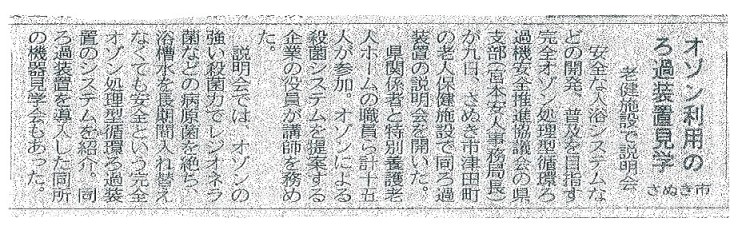 オゾン利用の
ろ過装置見学
老健施設で説明会
さぬき市
安全な入浴システムな
どの開発、普及を目指す
完全オゾン処理型循環ろ
過機安全推進協議会の県
支部(宮本安人事務局長)
が九日、さぬき市津田町
の老人保健施設で同ろ過
装置の説明会を開いた。
県関係者と特別養護老
人ホームの職員ら計十五
人が参加。オゾンによる
殺菌システムを提案する
企業の役員が講師を務め
た。
説明会では、オゾンの
強い殺菌力でレジオネラ
菌などの病原菌を絶ち、
浴槽水を長期間入れ替え
なくても安全という完全
オゾン処理型循環ろ過装
置のシステムを紹介。同
ろ過装置を導入した同所
の機器見学会もあった。